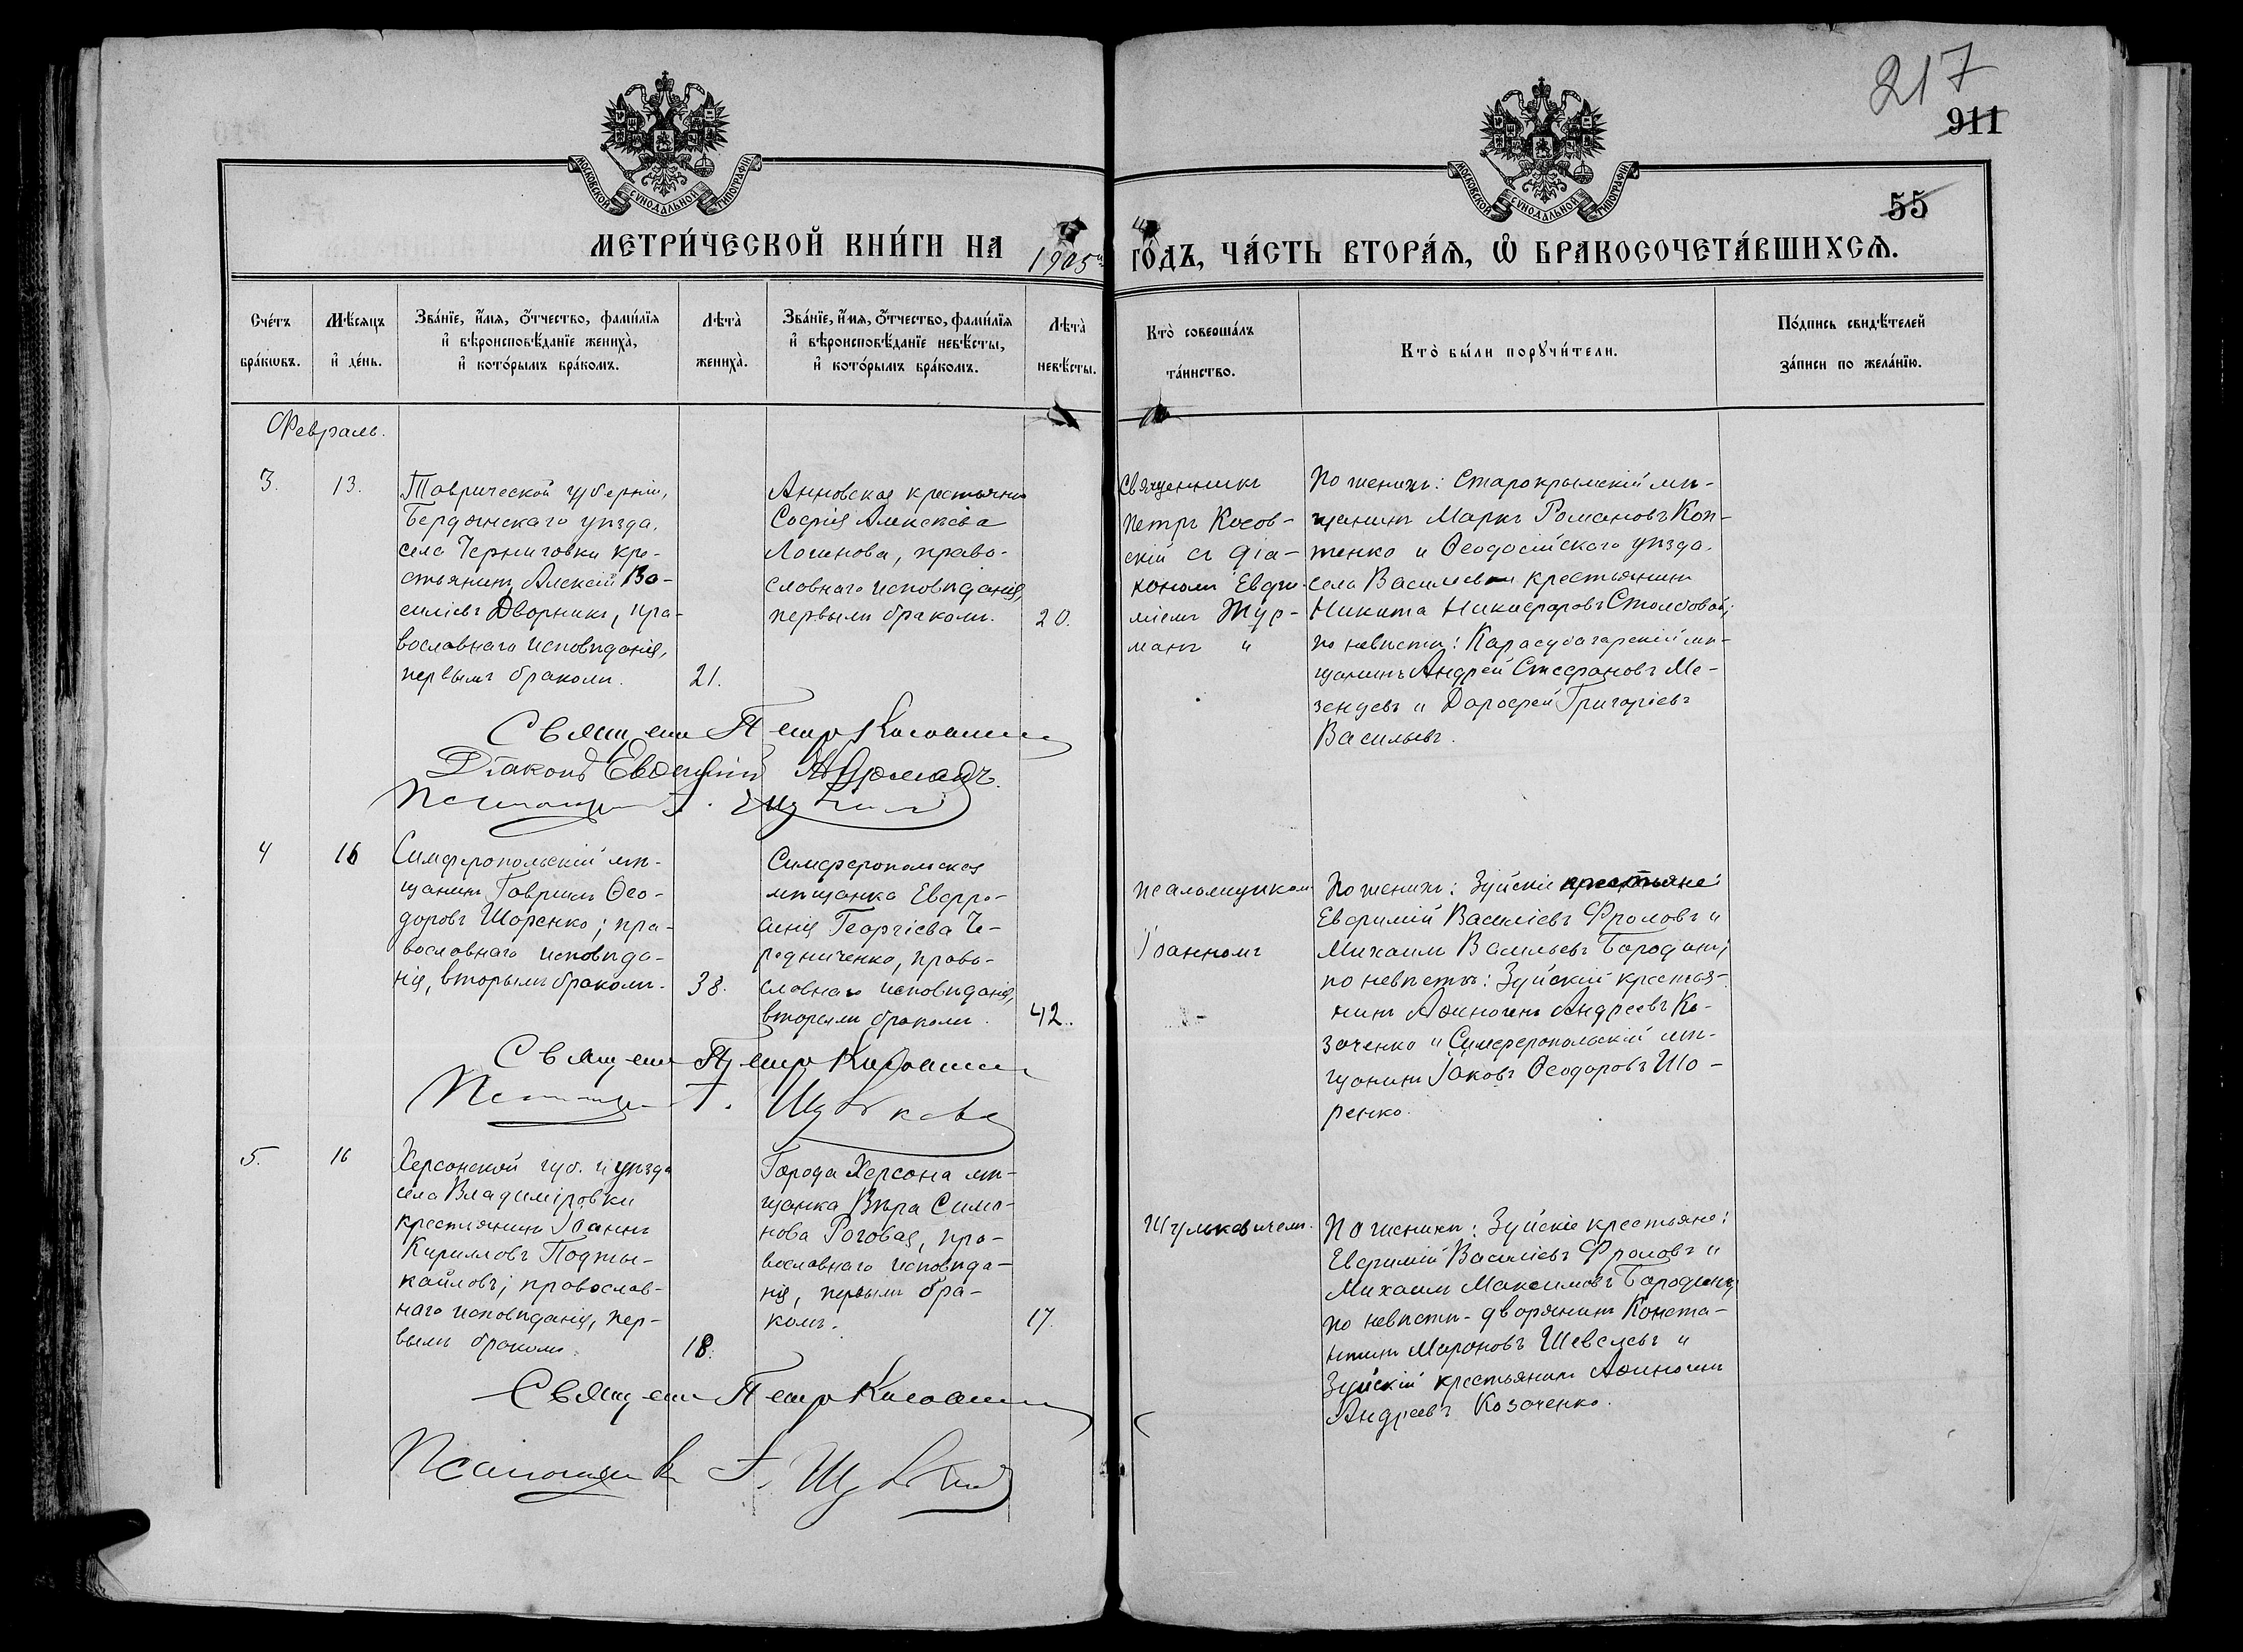 217
911
55
МОСКОВСКОЙ СѴНОДАЛЬНОЙ ТИПОГРАФІИ
МОСКОВСКОЙ СѴНОДАЛЬНОЙ ТИПОГРАФІИ
МЕТРИ́ЧЕСКОЙ КНИ́ГИ НА 1905й ГОДЪ, ЧА́СТЬ ВТОРА́Ѧ, Ѡ БРАКОСОЧЕТА́ВШИХСѦ.
Сче́тъ бра́кѡвъ.
Мѣ́сяцъ и҆ де́нь.
Зва́нїе, и҆́мя, ѻ҆́тчество, фами́лїя
и҆ вѣроисповѣ́данїе жениха̀,
и҆ кото́рымъ бра́комъ.
Лѣта̀ жениха̀.
Зва́нїе, и҆́мя, ѻ҆́тчество, фами́лїя
и҆ вѣроисповѣ́данїе невѣ́сты,
и҆ кото́рымъ бра́комъ.
Лѣта̀ невѣ́сты.
Кто̀ соверша́лъ
та́инство.
Кто̀ бы́ли порꙋчи́тели.
По́дпись свидѣ́телей
за́писи по жела́нїю.
Февраль.
3.
13.
Таврической губерніи,
Бердянскаго уѣзда,
села Черниговки кре-
стьянинъ, Алексій Ва-
силіевъ Дворникъ, пра-
вославнаго исповѣданія,
первымъ бракомъ.
21.
Анновская крестьянка
Софія Алексіева
Логинова, право-
славнаго исповѣданія,
первымъ бракомъ.
20.
Священникъ
Петръ Косов-
скій съ діа-
кономъ Евфи-
міемъ Жур-
манъ "
По женихѣ: Старокрымскій мѣ-
щанинъ Маркъ Романовъ Коп-
тенко и Ѳеодосійскаго уѣзда,
села Василіевки крестьянинъ
Никита Никифоровъ Столбовой;
по невѣстѣ: Карасубазарскій мѣ-
щанинъ Андрей Стефановъ Ме-
зенцевъ и Дорофей Григоріевъ
Васильевъ.
Священ Петръ Косовскій
Діаконъ Евфимій Журманъ.
4
16
Симферопольскій мѣ-
щанинъ Гавріилъ Ѳео-
доровъ Шоренко; пра-
вославнаго исповѣда-
нія, вторымъ бракомъ.
38.
Симферопольская
мѣщанка Евфро-
синія Георгіева Че-
редниченко, право-
славнаго исповѣданія,
вторымъ бракомъ.
42.
псаломщикомъ
Іоанномъ
По женихѣ: Зуйскіе крестьяне:
Евфимій Василіевъ Фроловъ и
Михаилъ Васильевъ Бородинъ;
по невѣстѣ: Зуйскій крестья-
нинъ Аѳиногенъ Андреевъ Ко-
заченко и Симферопольскій мѣ-
щанинъ Іаковъ Ѳеодоровъ Шо-
ренко.
Священ Петръ Косовскій
5.
16
Херсонской губ. и уѣзда
села Владиміровки
крестьянинъ Іоаннъ
Кирилловъ Подмы-
кайловъ; православ-
наго исповѣданія, пер-
вымъ бракомъ.
18.
Города Херсона мѣ-
щанка Вѣра Симо-
нова Роговая, пра-
вославнаго исповѣда-
нія, первымъ бра-
комъ.
17.
Шулькевичемъ.
По женихѣ: Зуйскіе крестьяне:
Евфимій Василіевъ Фроловъ и
Михаилъ Максимовъ Бородинъ,
по невѣстѣ - дворянинъ Конста-
нтинъ Мароновъ Шевелевъ и
Зуйскій крестьянинъ Аѳиногенъ
Андреевъ Козаченко.
Священ Петръ Косовскій
Псаломщикъ І.